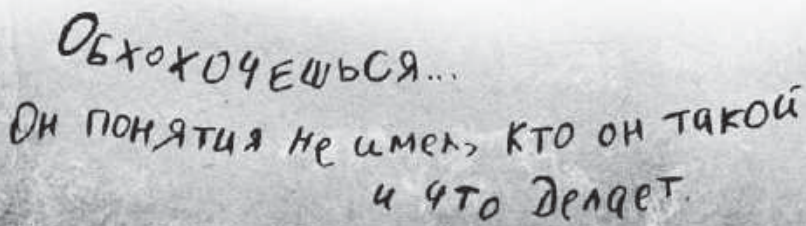 Обхохочешься...
Он понятия не имел, кто он такой
и что делает.